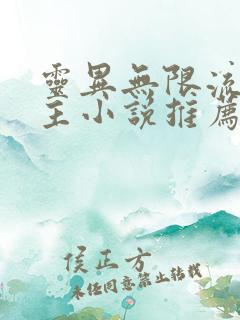 靈異無限流
主小說推薦
侯正方
未经同意禁止转载